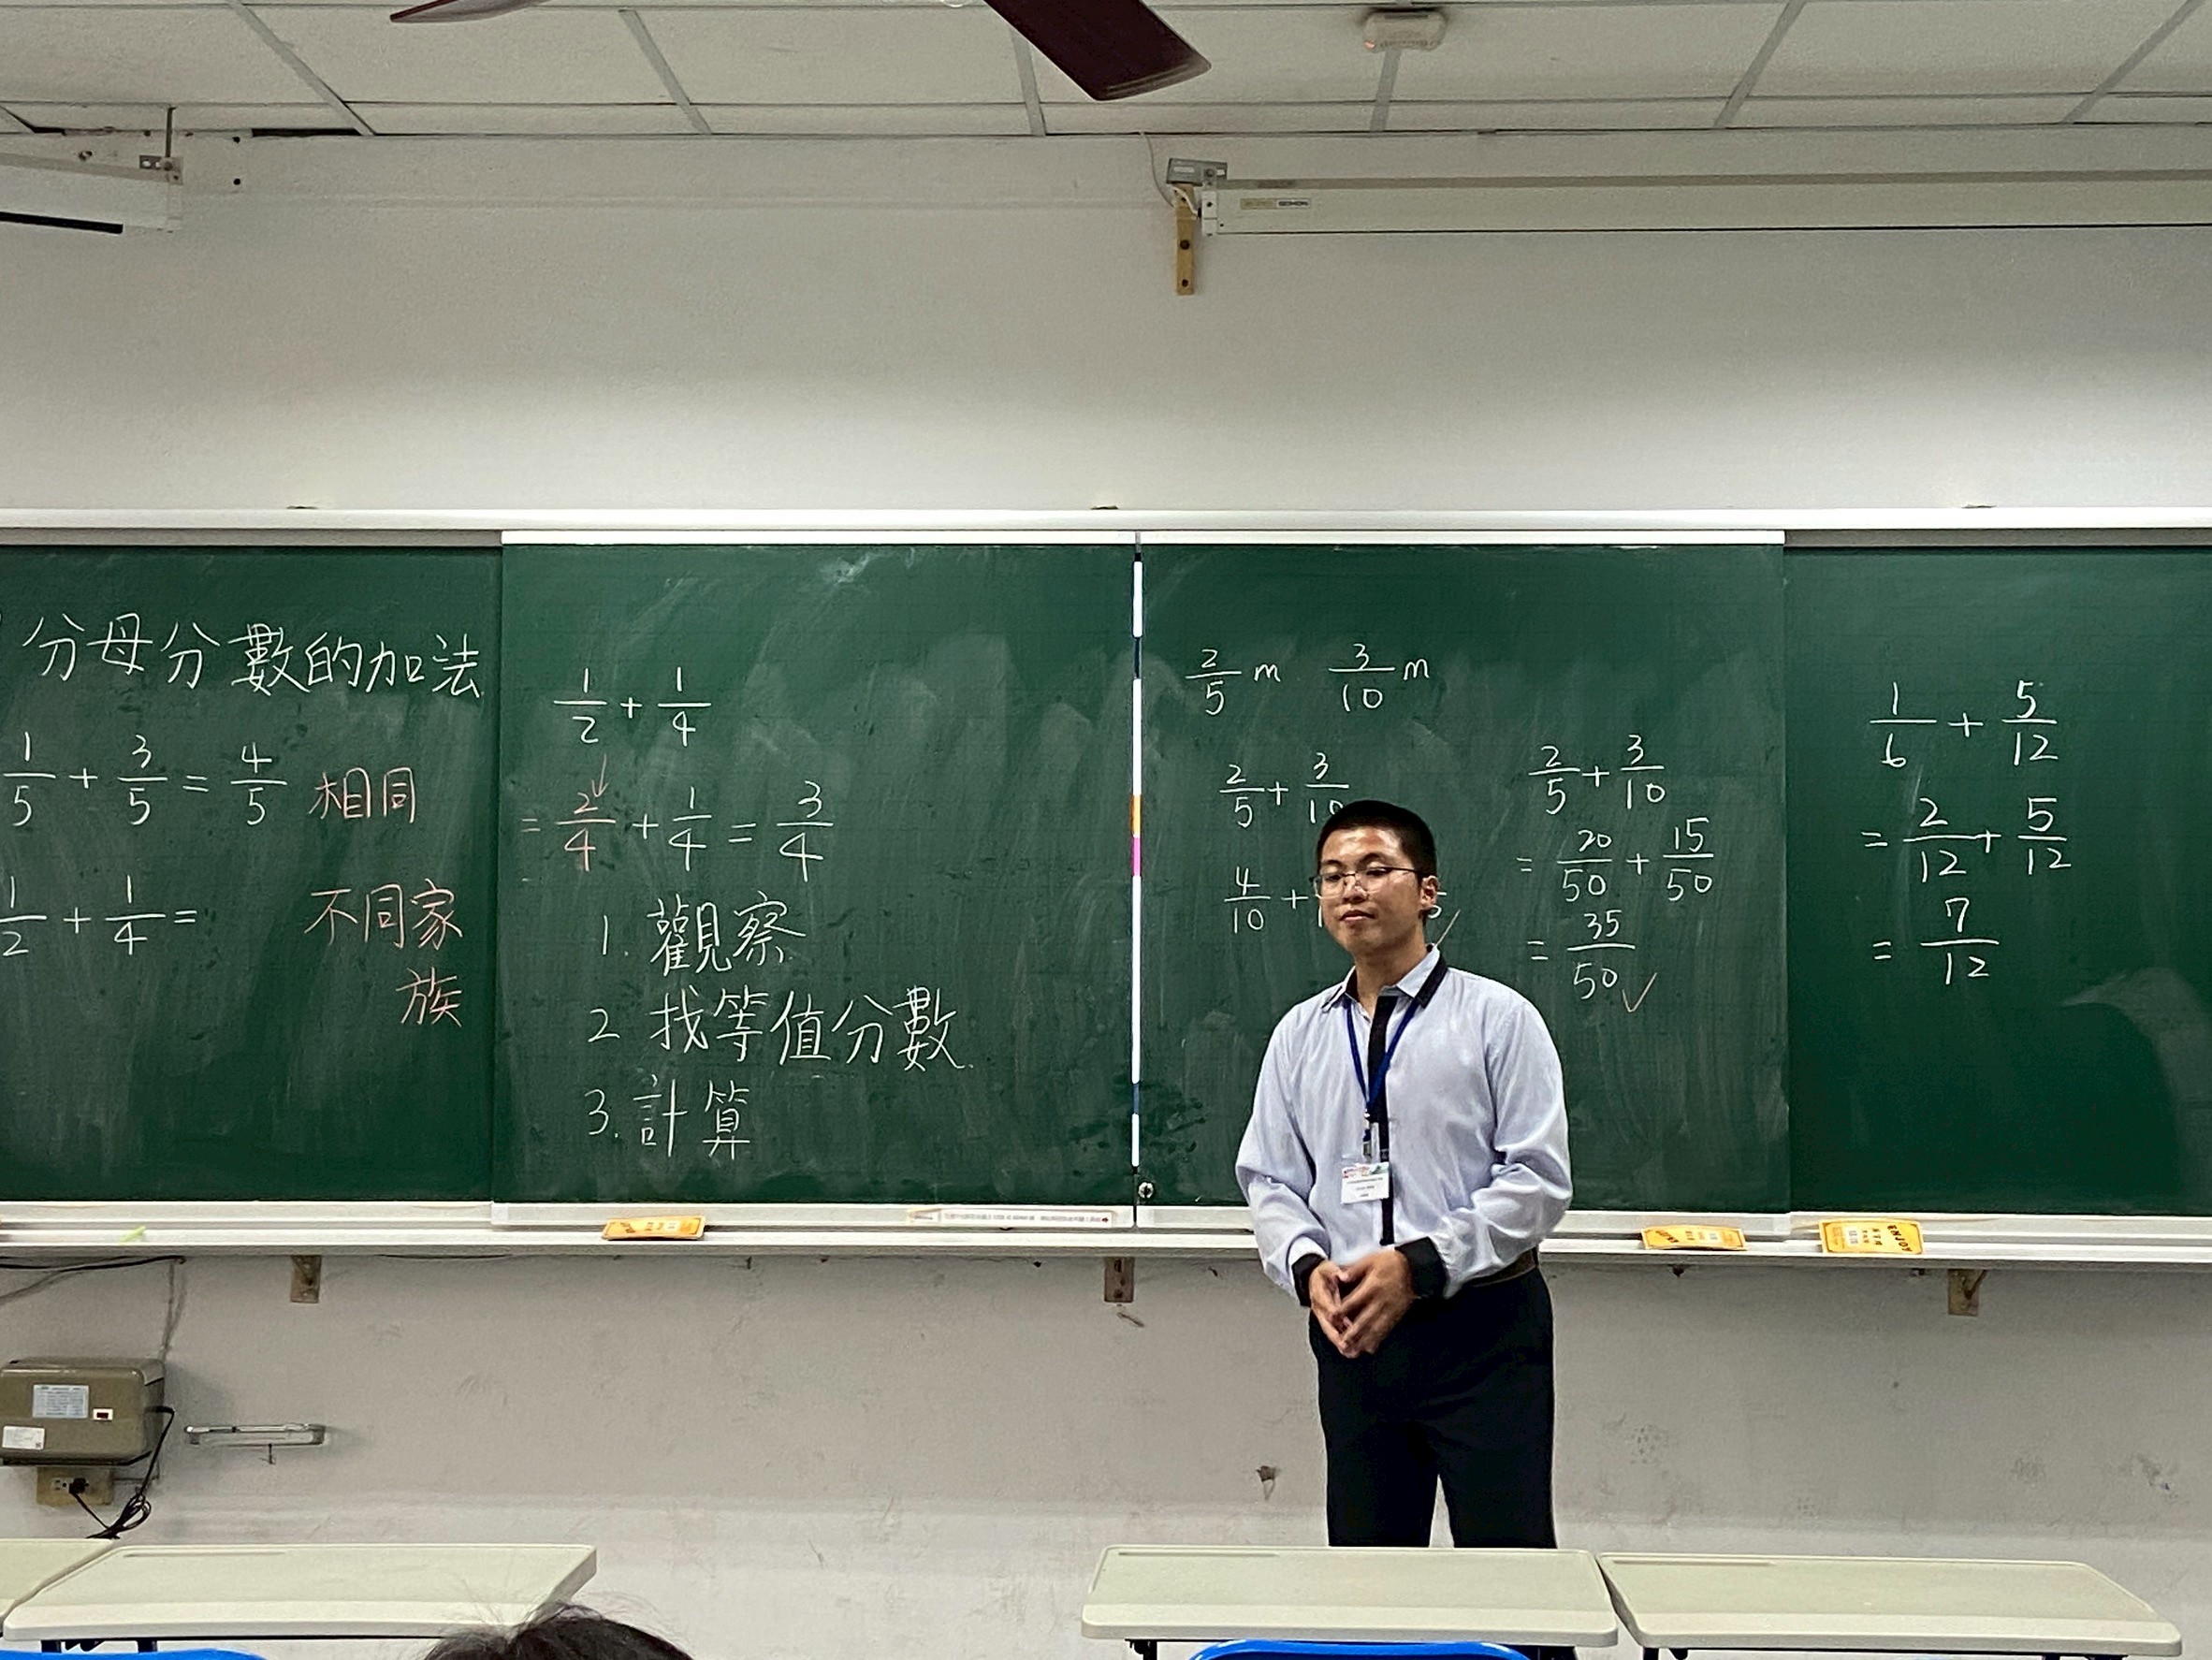 分母分數的加法
1/5 + 3/5 = 4/5 相同
1/2 + 1/4 = 不同家
族
1/2 + 1/4
= 2/4 + 1/4 = 3/4
1. 觀察
2 找等值分數
3. 計算
2/5 m 3/10 m
2/5 + 3/10
4/10 +
2/5 + 3/10
= 20/50 + 15/50
= 35/50 ✓
1/6 + 5/12
= 2/12 + 5/12
= 7/12